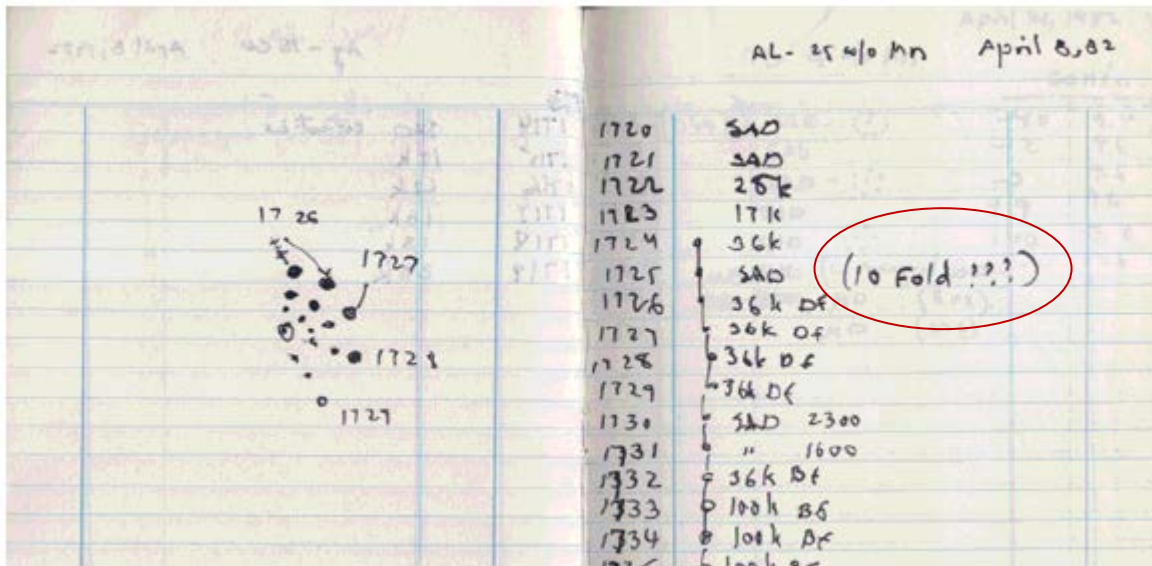 AL-25 w/o Mn April 8,82
1726
1727
1728
1729
1720 SAD
1721 SAD
1722 25k
1723 17k
1724 36k
1725 SAD (10 Fold ???)
1726 36k Df
1727 36k Df
1728 36k Df
1729 36k Df
1730 SAD 2300
1731 " 1600
1732 36k Bf
1733 100k Bf
1734 100k Bf